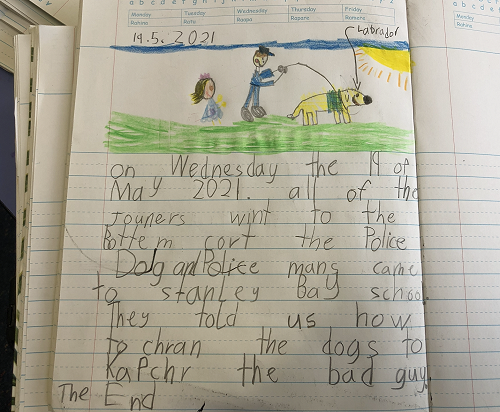 a b c d e f g h i j k l m n o p q r s t u v w x y z
Monday Tuesday Wednesday Thursday Friday
Rāhina Rātū Rāapa Rāpare Rāmere
19.5.2021
Labrador
on Wednesday the 19 of
May 2021. all of the
Jouners wint to the
Bottem cort the Police
Dolg and Police mans came
to stanley Bay school.
They told us how
to chran the dogs to
Kapchr the bad guy.
The End
Monday
Rāhina